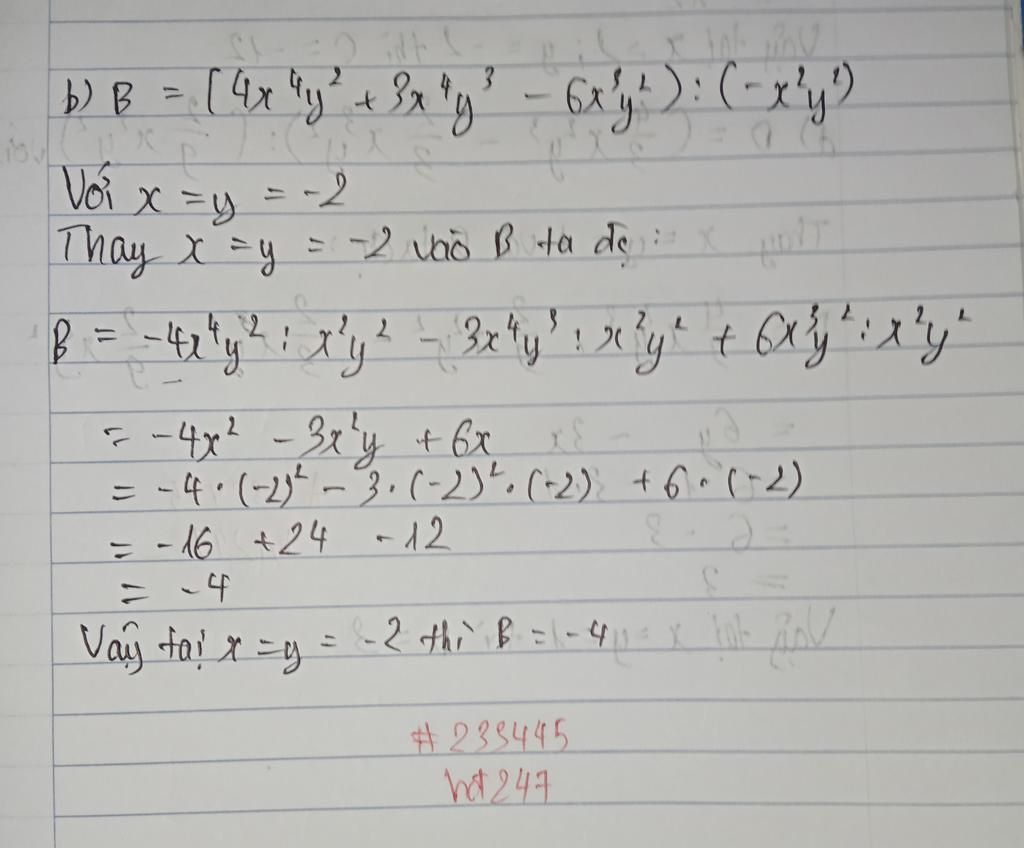 b) B = (4x⁴y² + 3x⁴y³ - 6x³y²) : (-x²y²)
Với x = y = -2
Thay x = y = -2 vào B ta đc :
B = -4x⁴y² : x²y² - 3x⁴y³ : x²y² + 6x³y² : x²y²
= -4x² - 3x²y + 6x
= -4 . (-2)² - 3 . (-2)² . (-2) + 6 . (-2)
= -16 + 24 - 12
= -4
Vậy tại x = y = -2 thì B = -4
# 233445
hot247